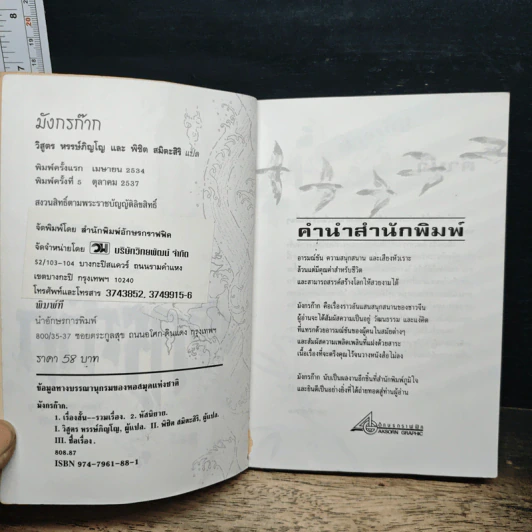 มังกรก๊าก
วิสูตร หรรษ์ภิญโญ และ พิชิต สมิตะสิริ แปล
พิมพ์ครั้งแรก เมษายน 2534
พิมพ์ครั้งที่ 5 ตุลาคม 2537
สงวนสิทธิ์ตามพระราชบัญญัติลิขสิทธิ์
จัดพิมพ์โดย สำนักพิมพ์อักษรกราฟฟิค
จัดจำหน่ายโดย วพ บริษัทวิทยพัฒน์ จำกัด
52/103-104 บางกะปิสแควร์ ถนนรามคำแหง
เขตบางกะปิ กรุงเทพฯ 10240
โทรศัพท์และโทรสาร 3743852, 3749915-6
พิมพ์ที่
นำอักษรการพิมพ์
800/35-37 ซอยตระกูลสุข ถนนอโศก-ดินแดง กรุงเทพฯ
ราคา 58 บาท
ข้อมูลทางบรรณานุกรมของหอสมุดแห่งชาติ
มังกรก๊าก.
1. เรื่องสั้น--รวมเรื่อง. 2. หัสนิยาย.
I. วิสูตร หรรษ์ภิญโญ, ผู้แปล. II. พิชิต สมิตะสิริ, ผู้แปล.
III. ชื่อเรื่อง.
808.87
ISBN 974-7961-88-1
คำนำสำนักพิมพ์
อารมณ์ขัน ความสนุกสนาน และเสียงหัวเราะ
ล้วนแต่มีคุณค่าสำหรับชีวิต
และสามารถสรรค์สร้างโลกให้สวยงามได้
มังกรก๊าก คือเรื่องราวอันแสนสนุกสนานของชาวจีน
ผู้อ่านจะได้สัมผัสความเป็นอยู่ วัฒนธรรม และแง่คิด
ที่แทรกด้วยอารมณ์ขันของผู้คนในสมัยต่างๆ
และสัมผัสความเพลิดเพลินที่แฝงด้วยสาระ
เนื้อเรื่องที่จะตรึงคุณไว้จนวางหนังสือไม่ลง
มังกรก๊าก นับเป็นผลงานอีกชิ้นที่สำนักพิมพ์ภูมิใจ
และยินดีเป็นอย่างยิ่งที่ได้ถ่ายทอดสู่ท่านผู้อ่าน
อักษรกราฟฟิค
AKSORN GRAPHIC